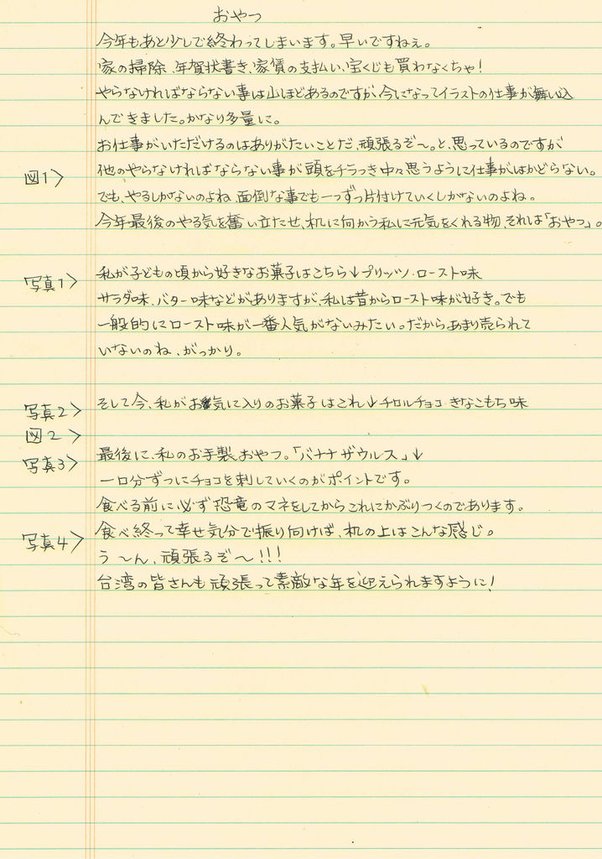 おやつ
今年もあと少しで終わってしまいます。早いですねぇ。
家の掃除、年賀状書き、家賃の支払い、宝くじも買わなくちゃ!
やらなければならない事は山ほどあるのですが、今になってイラストの仕事が舞い込
んできました。かなり多量に。
お仕事がいただけるのはありがたいことだ、頑張るぞ〜。と、思っているのですが
図1> 他のやらなければならない事が頭をチラつき中々思うように仕事がはかどらない。
でも、やるしかないのよね、面倒な事でも一つずつ片付けていくしかないのよね。
今年最後のやる気を奮い立たせ、机に向かう私に元気をくれる物、それは「おやつ」。
写真1> 私が子どもの頃から好きなお菓子はこちら↓プリッツ・ロースト味
サラダ味、バター味などがありますが、私は昔からロースト味が好き。でも
一般的にロースト味が一番人気がないみたい。だからあまり売られて
いないのね、がっかり。
写真2> そして今、私がお気に入りのお菓子はこれ↓チロルチョコ きなこもち味
図2>
写真3> 最後に、私のお手製おやつ。「バナナザウルス」↓
一口分ずつにチョコを刺していくのがポイントです。
食べる前に必ず恐竜のマネをしてからこれにかぶりつくのであります。
写真4> 食べ終って幸せ気分で振り向けば、机の上はこんな感じ。
う〜ん、頑張るぞ〜!!!
台湾の皆さんも頑張って素敵な年を迎えられますように!